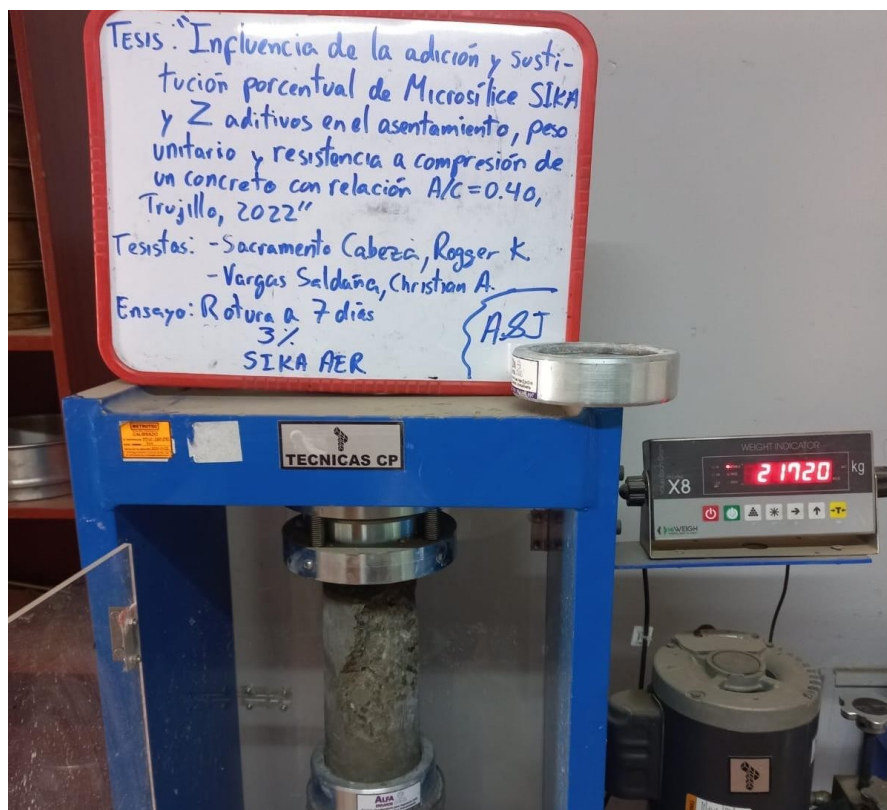 TESIS: "Influencia de la adición y susti-
tución porcentual de Microsílice SIKA
y 2 aditivos en el asentamiento, peso
unitario y resistencia a compresión de
un concreto con relación A/C=0.40,
Trujillo, 2022"
Tesistas: -Sacramento Cabeza, Rogger K.
-Vargas Saldaña, Christian A.
Ensayo: Rotura a 7 días
3%
SIKA AER
A&J
TECNICAS CP
WEIGHT INDICATOR
X8
21720 kg
HIWEIGH
ALFA